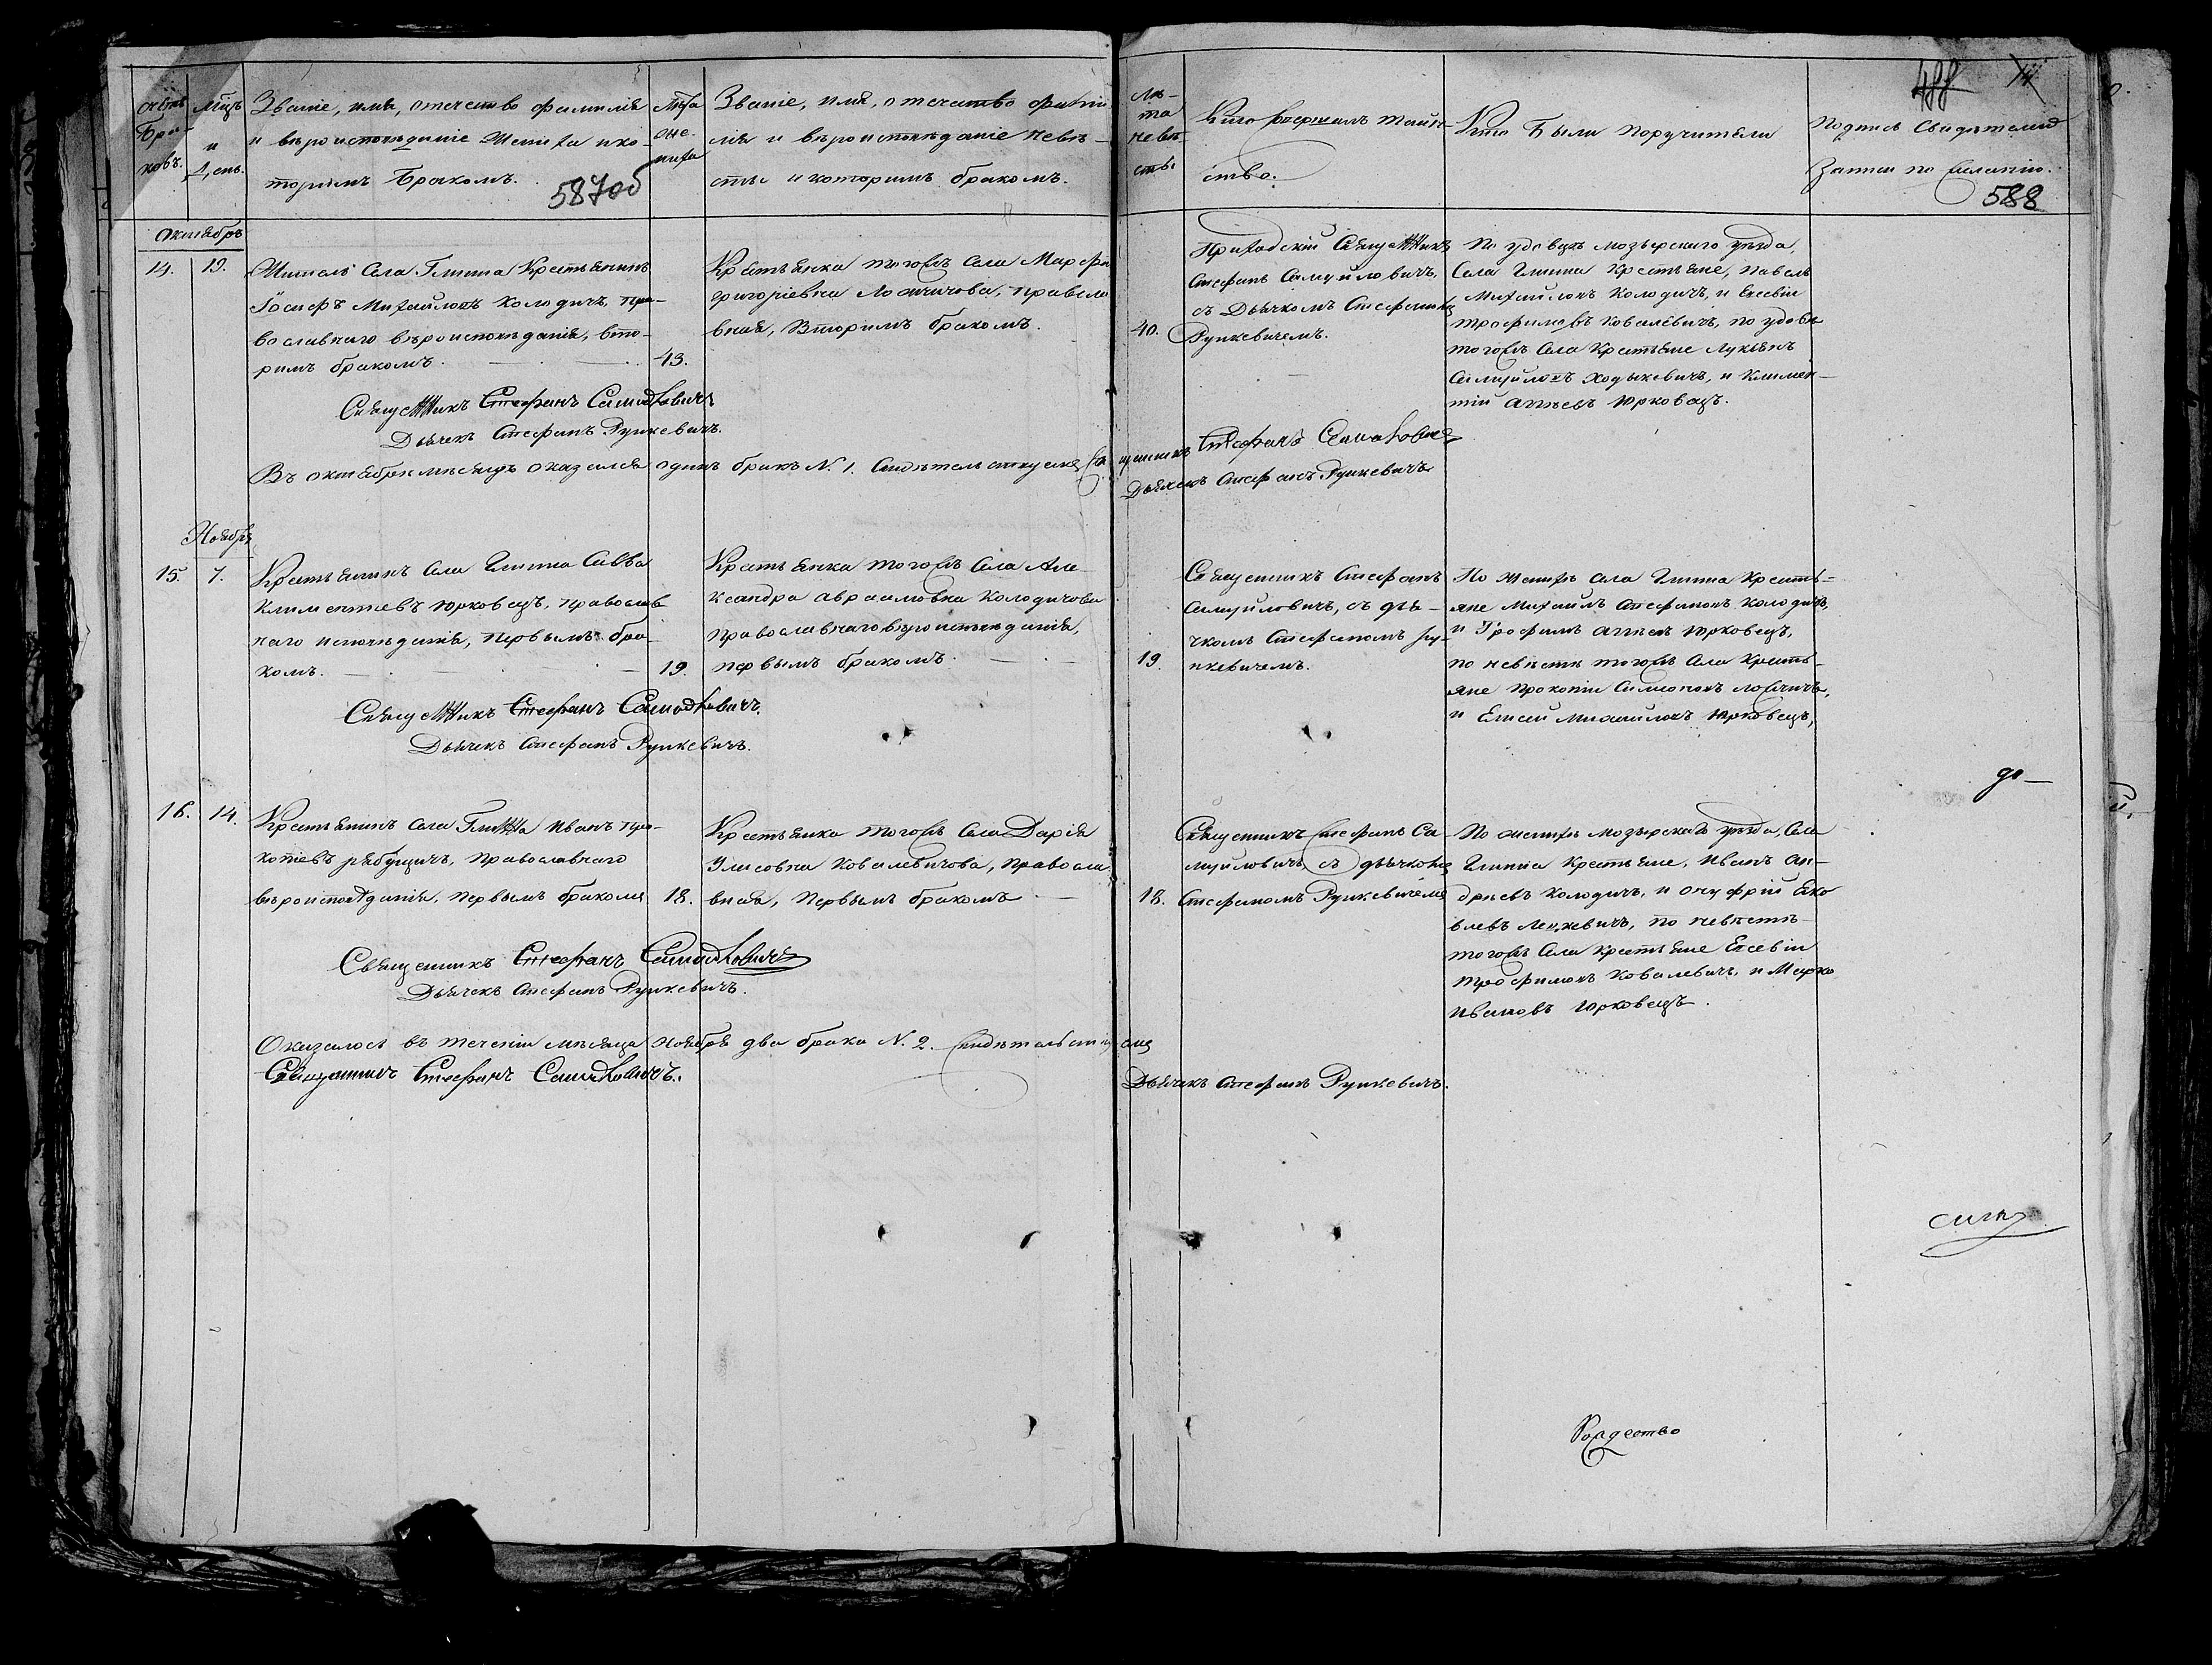 Счетъ Браковъ.
Мцъ и День.
Званіе, имя, отечество фамилія
и вѣроисповѣданіе Жениха и ко-
торымъ Бракомъ.
587об
Лѣта жениха
Званіе, имя, отечество фами-
лія и вѣроисповѣданіе невѣ-
сты и которимъ бракомъ.
Лѣ-
та
невѣ-
сты
Кто совершалъ таин-
ство.
Кто Были поручители
488
Подпись Свидѣтелей
Записи по желанію.
588
Октябрь
14. 19.
Житель Села Глинна Крестьянинъ
Іосифъ Михайловъ Колодичъ, пра-
вославнаго вѣроисповѣданія, вто-
римъ бракомъ.
43.
Крестьянка тогожъ Села Марфа
Григоріевна Ложичова, правосла
вная, Вторимъ бракомъ.
40.
Приходскій Священникъ
Стефанъ Самуйловичъ,
съ Дьячкомъ Стефаномъ
Рункевичемъ.
По удовцѣ мозырскаго уѣзда,
Села Глинна Крестьяне, Павелъ
Михайловъ Колодичъ, и Евсевій
трофимовъ Ковалевичъ, по удовѣ
тогожъ Села Крестьяне Лукьянъ
Самуйловъ Ходыкевичъ, и Климен-
тій Юрковецъ.
Священникъ Стефанъ Самойловичъ
Дьячекъ Стефанъ Рункевичъ.
Въ октябрѣ мѣсяцѣ оказался одинъ бракъ N. 1. Свидѣтельствуемъ Священникъ Стефанъ Самойловичъ
Дьячекъ Стефанъ Рункевичъ
Ноябрь
15. 7.
Крестьянинъ Села Глинна Савва
Климентіевъ Юрковецъ, православ
наго исповѣданія, первымъ бра-
комъ.
19.
Крестьянка тогожъ Села Але-
ксандра Авраамовна Колодичова
православнаго вѣроисповѣданія,
первымъ бракомъ.
19.
Священникъ Стефанъ
Самуйловичъ, съ дья-
чкомъ Стефаномъ Ру-
нкевичемъ.
По женихѣ села Глинна Кресть-
яне Михаилъ Стефановъ Колодичъ,
и Трофимъ Юрковецъ,
по невѣстѣ тогожъ Села Кресть-
яне Прокопій Симоновъ
и Елисей Михайловъ Юрковецъ,
Священникъ Стефанъ Самойловичъ.
Дьячекъ Стефанъ Рункевичъ.
16. 14.
Крестьянинъ Села Глинна Иванъ Про-
копіевъ Рабущичъ, Православнаго
вѣроисповѣданія, Первымъ бракомъ
18.
Крестьянка тогожъ Села Дарія
Улисовна Ковалевичова, правосла
вная, Первымъ бракомъ
18.
Священникъ Стефанъ Са-
муйловичъ, съ дьячкомъ
Стефаномъ Рункевичемъ
По женихѣ мозырскаго уѣзда, Села
Глинна Крестьяне, Иванъ Ан-
дреевъ Колодичъ, и Онуфрій Яко
влевъ Ленкевичъ, по невѣстѣ
тогожъ Села Крестьяне Евсевій
Трофимовъ Ковалевичъ, и Марко
Ивановъ Юрковецъ.
Священникъ Стефанъ Самойловичъ
Дьячекъ Стефанъ Рункевичъ.
Оказалось въ теченіи мѣсяца Ноября два брака N. 2. Свидѣтельствуемъ
Священникъ Стефанъ Самойловичъ.
Дьячекъ Стефанъ Рункевичъ.
Рождество